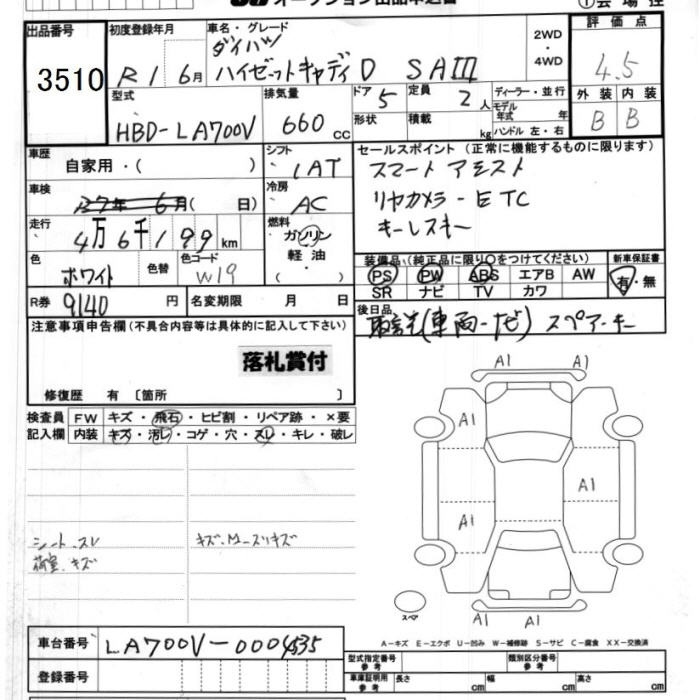 オークション出品申込書
①会場控
出品番号
3510
初度登録年月
R1 6月
車名・グレード
ダイハツ
ハイゼットキャディD SAIII
2WD
・
4WD
評価点
4.5
外装 内装
B B
型式
HBD-LA700V
排気量
660 cc
ドア 5
形状
定員 2人
積載 kg
ディーラー・並行
モデル年式 年
ハンドル 左・右
車歴
自家用・( )
シフト
1AT
セールスポイント (正常に機能するものに限ります)
スマートアシスト
リヤカメラ-ETC
キーレスキー
車検
R7年 6月( 日)
冷房
AC
走行
4万6千199km
燃料
ガソリン
軽油・
( )
色
ホワイト
色替
色コード
W19
装備品(純正品に限り○をつけてください)
PS PW ABS エアB AW
SR ナビ TV カワ
新車保証書
有・無
R券
9140円
名変期限 月 日
後日品
取説(車両-ナビ) スペアーキー
注意事項申告欄(不具合内容等は具体的に記入して下さい)
落札賞付
修復歴 有〔箇所 〕
検査員記入欄
FW キズ・飛石・ヒビ割・リペア跡・×要
内装 キズ・汚レ・コゲ・穴・スレ・キレ・破レ
シート.スレ
荷室.キズ
A1 A1
A1
A1
A1
A1 A1
スペア
A-キズ E-エクボ U-凹み W-補修跡 S-サビ C-腐食 XX-交換済
車台番号
LA700V-0004535
登録番号
型式指定番号 参考
類別区分番号 参考
車庫証明用 参考
長さ cm
幅 cm
高さ cm